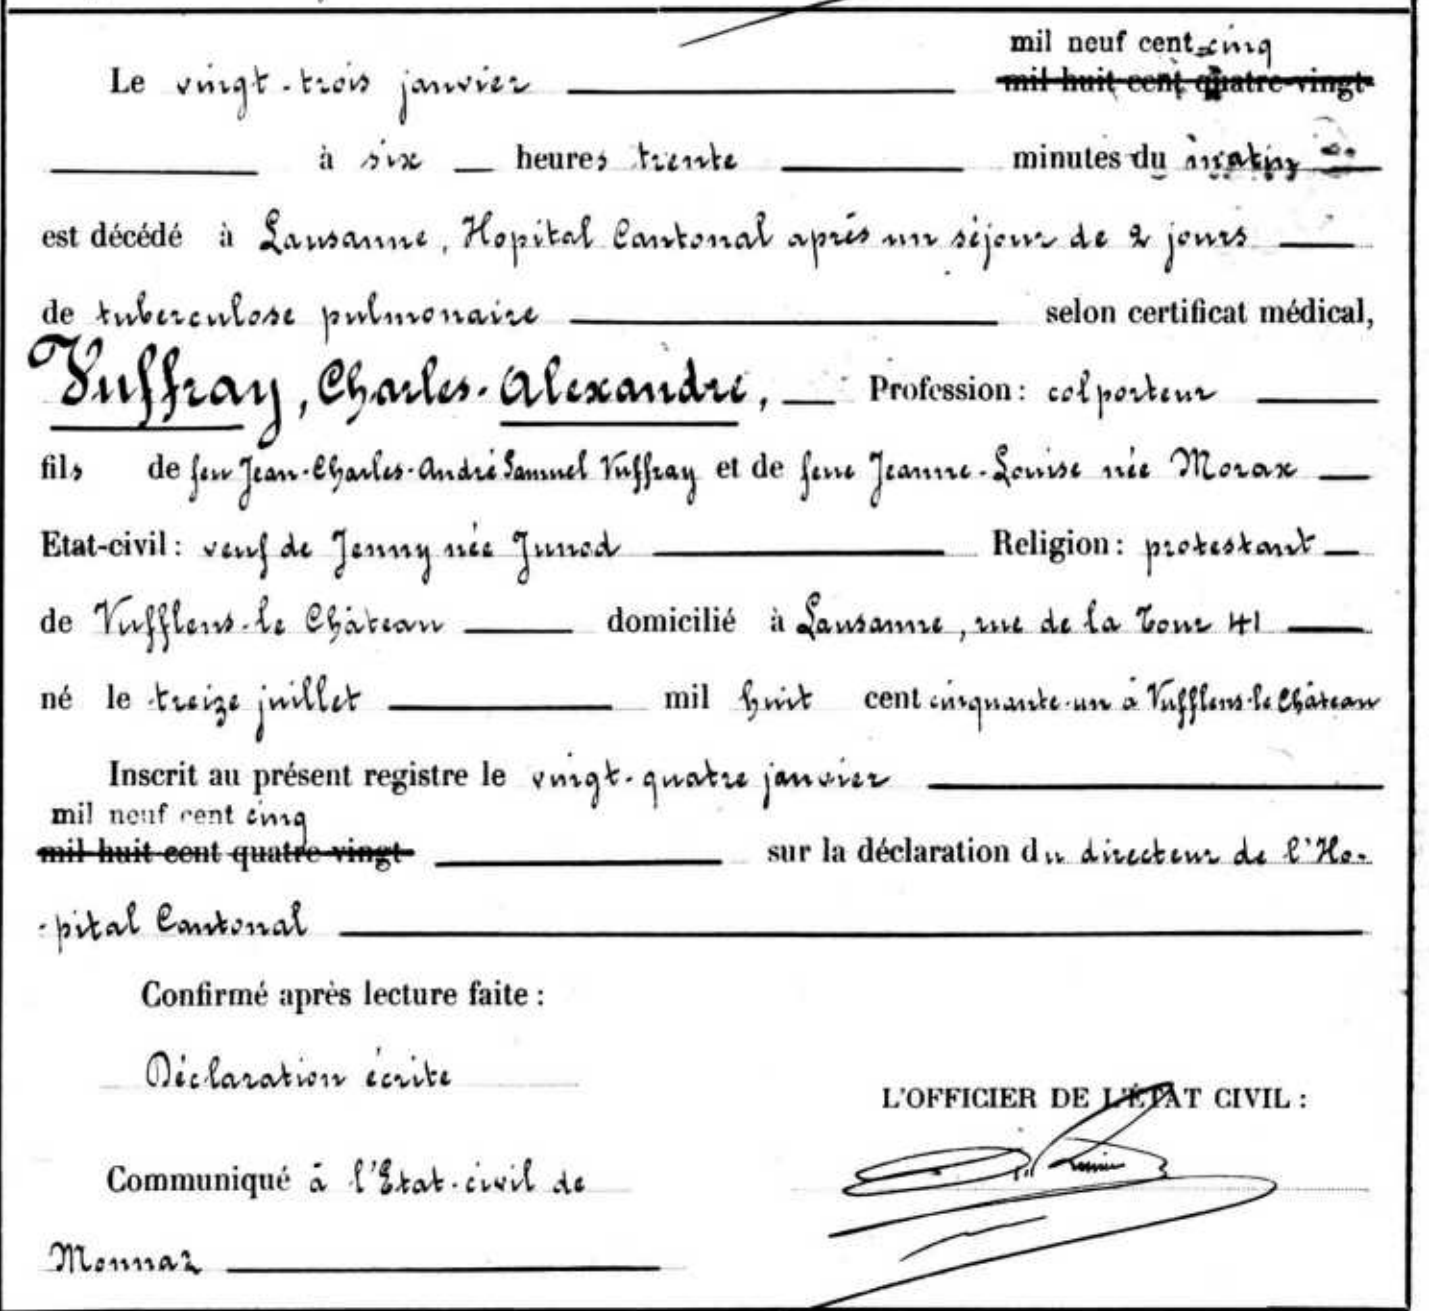 mil neuf cent cinq
Le vingt-trois janvier mil huit cent quatre-vingt
à six heures trente minutes du matin
est décédé à Lausanne, Hopital Cantonal après un séjour de 2 jours
de tuberculose pulmonaire selon certificat médical,
Vuffray, Charles-Alexandre, Profession: colporteur
fils de feu Jean-Charles-André Samuel Vuffray et de feue Jeanne-Louise née Morax
Etat-civil: veuf de Jenny née Junod Religion: protestant
de Vufflens-le Château domicilié à Lausanne, rue de la Tour 41
né le treize juillet mil huit cent cinquante-un à Vufflens-le Château
Inscrit au présent registre le vingt-quatre janvier
mil neuf cent cinq
mil huit cent quatre-vingt sur la déclaration du directeur de l'Ho-
-pital Cantonal
Confirmé après lecture faite:
Déclaration écrite
L'OFFICIER DE L'ÉTAT CIVIL:
Communiqué à l'Etat-civil de
Monnaz